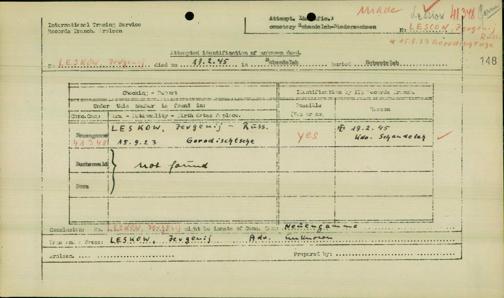 Made
Leskow 41348
International Tracing Service
Records Branch, Arolsen
Attempt. Identific.
cemetery Schandelah-Niedersachsen
No. LESKOW, Jewgenij Rus.
* 15.9.23 Gorodischtsche
148
Attempted identification of unknown dead.
No. LESKOW, Jewgenij died on 19.2.45 in Schandelah buried Schandelah
Checking - Report
Identification by ITS Records Branch.
Under this number is found in:
Possible
Reason
Conc.Camp Name - Nationality - Birth date & place.
(Yes or no)
Neuengamme LESKOW, Jewgenij - Russ.
41348 15.9.23 Gorodischtsche
yes
19.2.45
Kdo. Schandelah
Buchenwald
not found
Dora
Conclusion: No. LESKOW, Jewgenij might be inmate of Conc. Camp Neuengamme
LESKOW, Jewgenij Adr. unknown
Arolsen, Prepared by: